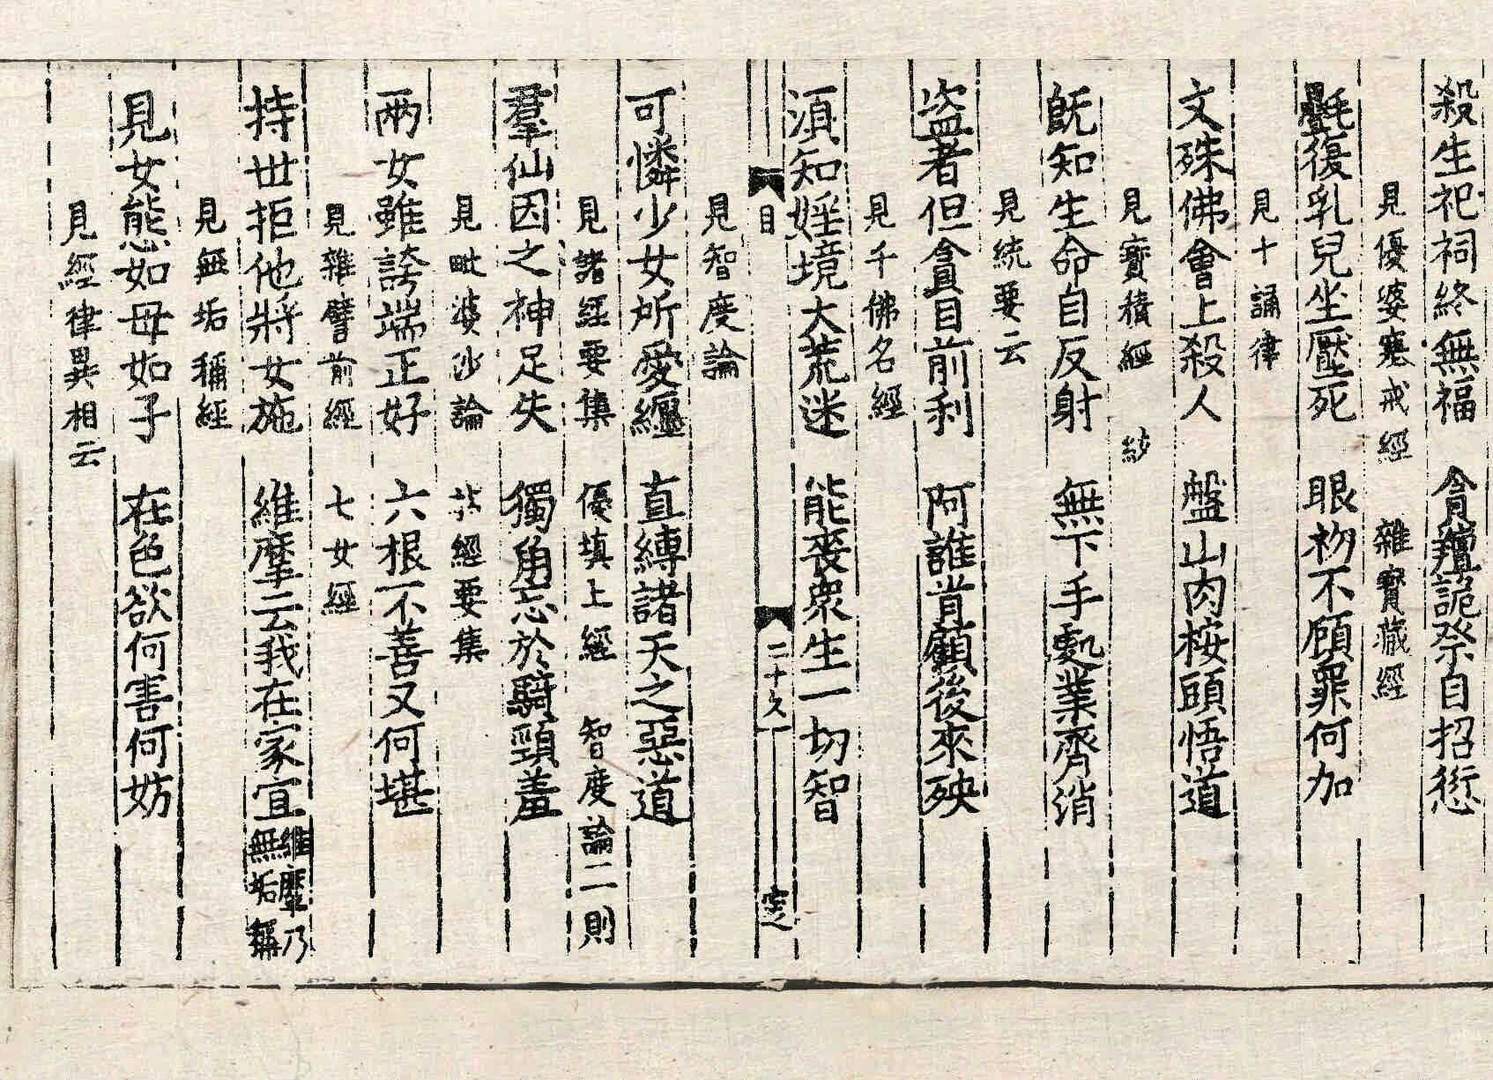 殺生祀祠終無福　貪羶詭祭自招愆
見優婆塞戒經　雜寶藏經
氎覆乳兒坐壓死　眼衯不顧罪何加
見十誦律
文殊佛會上殺人　盤山肉桉頭悟道
見寶積經　紗
旣知生命自反射　無下手處業齊消
見統要云
盜者但貪目前利　阿誰肯顧後來殃
見千佛名經
須知婬境大荒迷　能喪衆生一切智
目　二十九　定
見智度論
可憐少女所愛纏　直縛諸天之惡道
見諸經要集　優填上經　智度論二則
羣仙因之神足失　獨角忘於騎頸羞
見毗婆沙論　經要集
兩女雖誇端正好　六根不善又何堪
見雜譬前經　七女經
持世拒他將女施　維摩云我在家宜維摩乃無垢稱
見無垢稱經
見女態如母如子　在色欲何害何妨
見經律異相云